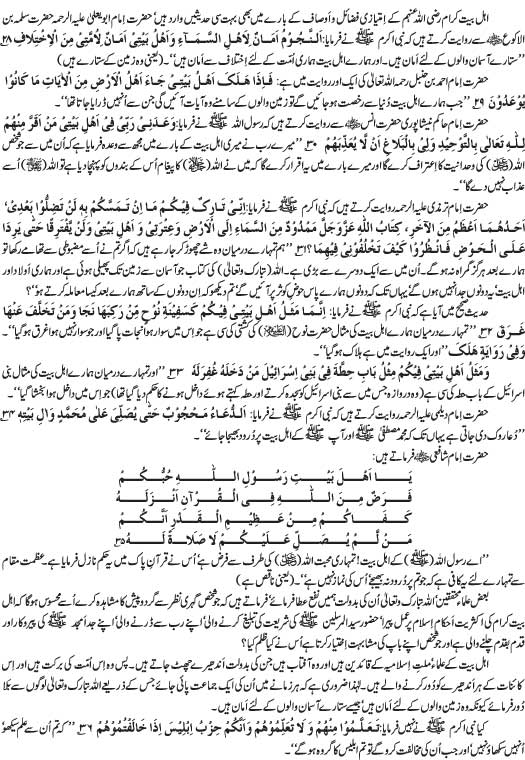 اہل بیت کرام رضی اللہ عنہم کے امتیازی فضائل و اوصاف کے بارے میں بھی بہت سی حدیثیں وارد ہیں' حضرت امام ابو یعلیٰ علیہ الرحمہ حضرت سلمہ بن
الاکوع سے روایت کرتے ہیں کہ نبی اکرم ﷺ نے فرمایا: اَلنُّجُوْمُ اَمَانٌ لِاَهْلِ السَّمَاءِ وَاَهْلُ بَيْتِىْ اَمَانٌ لِاُمَّتِىْ مِنَ الْاِخْتِلَافِ ۲۸
''ستارے آسمان والوں کے لئے امان ہیں۔ اور ہمارے اہل بیت ہماری امت کے لئے اختلاف سے امان ہیں''۔ (یعنی وہ زمین کے ستارے ہیں)
حضرت امام احمد بن حنبل رحمۃ اللہ تعالیٰ کی ایک اور روایت میں ہے: فَاِذَا هَلَكَ اَهْلُ بَيْتِىْ جَاءَ اَهْلَ الْاَرْضِ مِنَ الْاٰيَاتِ مَا كَانُوْا
يُوْعَدُوْنَ ۲۹ ''جب ہمارے اہل بیت دنیا سے رخصت ہو جائیں گے تو زمین والوں کے سامنے وہ آیات آئیں گی جن سے انہیں ڈرایا جاتا تھا''۔
حضرت امام حاکم نیشاپوری حضرت انس سے روایت کرتے ہیں کہ رسول اللہ ﷺ نے فرمایا: وَعَدَنِىْ رَبِّىْ فِىْ اَهْلِ بَيْتِىْ مَنْ اَقَرَّ مِنْهُمْ
لِلّٰهِ تَعَالٰى بِالتَّوْحِيْدِ وَلِىْ بِالْبَلَاغِ اَنْ لَّا يُعَذِّبَهُمْ ۳۰ ''میرے رب نے میری اہل بیت کے بارے میں مجھ سے وعدہ فرمایا ہے کہ اُن میں سے جو شخص
اللہ کی وحدانیت کا اعتراف کرے گا اور میرے بارے میں یہ اقرار کرے گا کہ میں نے اللہ کا پیغام اُس کے بندوں کو پہنچا دیا ہے تو اللہ اسے
عذاب نہیں دے گا''۔
حضرت امام ترمذی علیہ الرحمہ روایت کرتے ہیں کہ نبی اکرم ﷺ نے فرمایا: اِنِّىْ تَارِكٌ فِيْكُمْ مَا اِنْ تَمَسَّكْتُمْ بِهٖ لَنْ تَضِلُّوْا بَعْدِىْ'
اَحَدُهُمَا اَعْظَمُ مِنَ الْاٰخَرِ' كِتَابُ اللّٰهِ عَزَّوَجَلَّ حَبْلٌ مَمْدُوْدٌ مِنَ السَّمَاءِ اِلَى الْاَرْضِ وَعِتْرَتِىْ وَ اَهْلُ بَيْتِىْ وَلَنْ يَّتَفَرَّقَا حَتّٰى يَرِدَا
عَلَى الْحَوْضِ فَانْظُرُوْا كَيْفَ تَخْلُفُوْنِىْ فِيْهِمَا؟ ۳۱ ''ہم تمہارے درمیان وہ شے چھوڑ کر جا رہے ہیں کہ اگر تم نے اُسے مضبوطی سے تھامے رکھا تو
ہمارے بعد ہرگز گمراہ نہ ہو گے۔ اُن میں سے ایک دوسرے سے بڑی ہے۔ اللہ (تبارک وتعالیٰ) کی کتاب جو آسمان سے زمین تک پھیلی ہوئی ہے اور ہماری اولاد اور
اہل بیت' یہ دونوں جدا نہیں ہوں گے یہاں تک کہ دونوں ہمارے پاس حوض کوثر پر آئیں گے' تم دیکھو کہ ان دونوں کے ساتھ ہمارے بعد کیسا معاملہ کرتے ہو؟''
حدیث صحیح میں آیا ہے کہ نبی اکرم ﷺ نے فرمایا: اِنَّمَا مَثَلُ اَهْلِ بَيْتِىْ فِيْكُمْ كَسَفِيْنَةِ نُوْحٍ مَنْ رَكِبَهَا نَجَا وَمَنْ تَخَلَّفَ عَنْهَا
غَرِقَ ۳۲ ''تمہارے درمیان ہمارے اہل بیت کی مثال حضرت نوح کی کشتی کی سی ہے جو اس میں سوار ہوا نجات پا گیا اور جو سوار نہیں ہوا غرق ہو گیا''۔
وَفِىْ رِوَايَةٍ هَلَكَ ''اور ایک روایت میں ہے ہلاک ہو گیا''۔
وَمَثَلُ اَهْلِ بَيْتِىْ فِيْكُمْ مِثْلُ بَابِ حِطَّةٍ فِىْ بَنِىْ اِسْرَائِيْلَ مَنْ دَخَلَهٗ غُفِرَ لَهٗ ۳۳ ''اور تمہارے درمیان ہمارے اہل بیت کی مثال بنی
اسرائیل کے باب حطہ کی سی ہے (وہ دروازہ جس میں سے بنی اسرائیل کو سجدہ کرتے اور حطہ کہتے ہوئے داخل ہونے کا حکم دیا گیا تھا) جو اس میں داخل ہوا بخشا گیا''۔
حضرت امام دیلمی علیہ الرحمہ روایت کرتے ہیں کہ نبی اکرم ﷺ نے فرمایا: اَلدُّعَاءُ مَحْجُوْبٌ حَتّٰى يُصَلّٰى عَلٰى مُحَمَّدٍ وَّاٰلِ بَيْتِهٖ ۳۴
''دعا روک دی جاتی ہے یہاں تک کہ محمد مصطفیٰ ﷺ اور آپ ﷺ کے اہل بیت پر دُرود بھیجا جائے''۔
حضرت امام شافعی فرماتے ہیں:
يَا اَهْلَ بَيْتِ رَسُوْلِ اللّٰهِ حُبُّكُمْ
فَرْضٌ مِنَ اللّٰهِ فِى الْقُرْاٰنِ اَنْزَلَهٗ
كَفَاكُمْ مِنْ عَظِيْمِ الْقَدْرِ اَنَّكُمْ
مَنْ لَّمْ يُصَلِّ عَلَيْكُمْ لَا صَلٰوةَ لَهٗ ۳۵
''اے رسول اللہ (ﷺ) کے اہل بیت! تمہاری محبت اللہ کی طرف سے فرض ہے' اُس نے قرآن پاک میں یہ حکم نازل فرمایا ہے۔ عظمت مقام
سے تمہارے لئے یہ کافی ہے کہ جو تم پر دُرود نہ بھیجے' اُس کی نماز نہیں ہے''۔ (یعنی ناقص ہے)
بعض علماء محققین' اللہ تبارک وتعالیٰ اُن کی بدولت ہمیں نفع عطا فرمائے' فرماتے ہیں کہ جو شخص گہری نظر سے گرد و پیش کا مشاہدہ کرے اُسے محسوس ہو گا کہ اہل
بیت کرام کی اکثریت احکام اسلام پر عمل پیرا' حضور سید المرسلین ﷺ کی شریعت کی تبلیغ کرنے والی' اپنے رب سے ڈرنے والی' اپنے جد امجد ﷺ کی پیروکار اور
قدم بقدم چلنے والی ہے اور جو شخص اپنے باپ کی مشابہت اختیار کرتا ہے اُس نے کیا ظلم کیا؟
اہل بیت کے علماء ملت اسلامیہ کے قائدین ہیں اور وہ آفتاب ہیں جن کی بدولت اندھیرے چھٹ جاتے ہیں۔ پس وہ اس اُمت کی برکت اور اس
کائنات کے ہر اندھیرے کو دُور کرنے والے ہیں۔ لہٰذا ضروری ہے کہ ہر زمانے میں اُن کی ایک جماعت پائی جائے جس کے ذریعے اللہ تبارک وتعالیٰ لوگوں سے بلا
دور فرمائے کیونکہ وہ زمین والوں کے لئے امان ہیں' جیسے ستارے آسمان والوں کے لئے امان ہیں۔
کیا نبی اکرم ﷺ نے نہیں فرمایا: تَعَلَّمُوْا مِنْهُمْ وَ لَا تُعَلِّمُوْهُمْ وَاَنَّكُمْ حِزْبُ اِبْلِيْسَ اِذَا خَالَفْتُمُوْهُمْ ۳۶ ''کہ تم اُن سے علم سیکھو'
انہیں سکھاؤ نہیں' اور جب اُن کی مخالفت کرو گے تو تم ابلیس کا گروہ ہو گے''۔